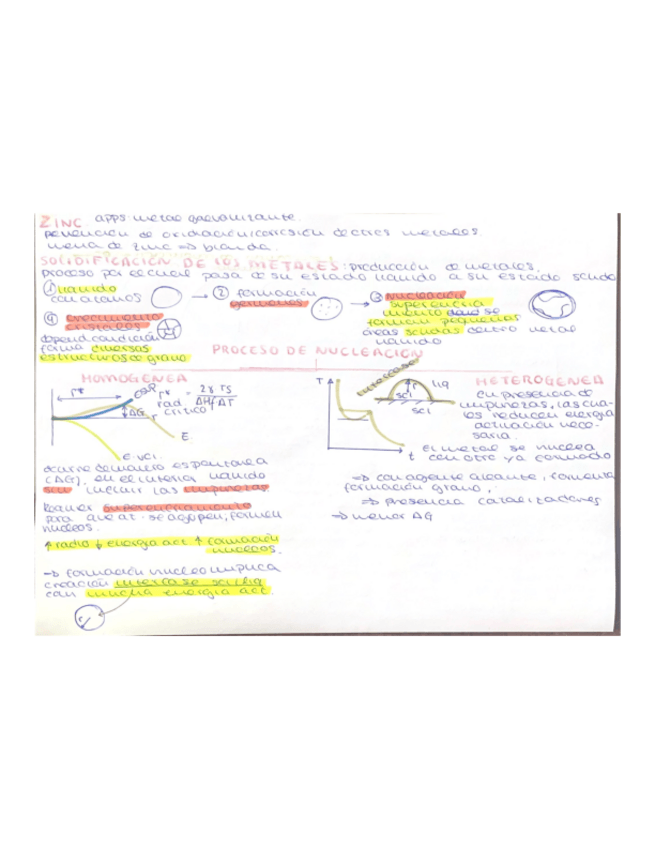 ZINC apps: metal galvanizante.
prevención de oxidación/corrosión de otros metales.
mena de zinc => blenda.
SOLIDIFICACIÓN DE LOS METALES: producción de metales.
proceso por el cual pasa de su estado líquido a su estado sólido
① líquido con átomos → ② formación gérmenes → ③ nucleación
superenfriamiento donde se
forman pequeñas
áreas sólidas dentro metal
líquido
④ crecimiento cristales
depend condición
forma diversas
estructuras grano
PROCESO DE NUCLEACIÓN
HOMOGENEA
r* rad crítico = 2γTs / ΔHf ΔT
ΔG
r
E
E vol.
ocurre de manera espontánea
(ΔG), en el interior líquido
sin incluir las impurezas.
Requier superenfriamiento
para que at. se agrupen, formen
núcleos.
↑ radio ↓ energía act ↑ formación
núcleos.
→ formación núcleo implica
creación interfase sol/liq
con mucha energía act.
T
t
interfase
r
liq
sol
sol
HETEROGENEA
en presencia de
impurezas, las cua-
les reducen energía
activación nece-
saria.
el metal se nuclea
con otro ya formado
=> presencia catalizadores
→ menor ΔG